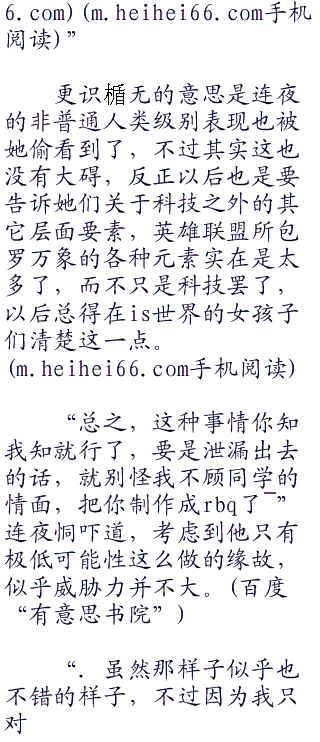 6.com)(m.heihei66.com手机
阅读)”
更识楯无的意思是连夜
的非普通人类级别表现也被
她偷看到了，不过其实这也
没有大碍，反正以后也是要
告诉她们关于科技之外的其
它层面要素，英雄联盟所包
罗万象的各种元素实在是太
多了，而不只是科技罢了，
以后总得在is世界的女孩子
们清楚这一点。
(m.heihei66.com手机阅读)
“总之，这种事情你知
我知就行了，要是泄漏出去
的话，就别怪我不顾同学的
情面，把你制作成rbq了¯”
连夜恫吓道，考虑到他只有
极低可能性这么做的缘故，
似乎威胁力并不大。(百度
“有意思书院”)
“．虽然那样子似乎也
不错的样子，不过因为我只
对